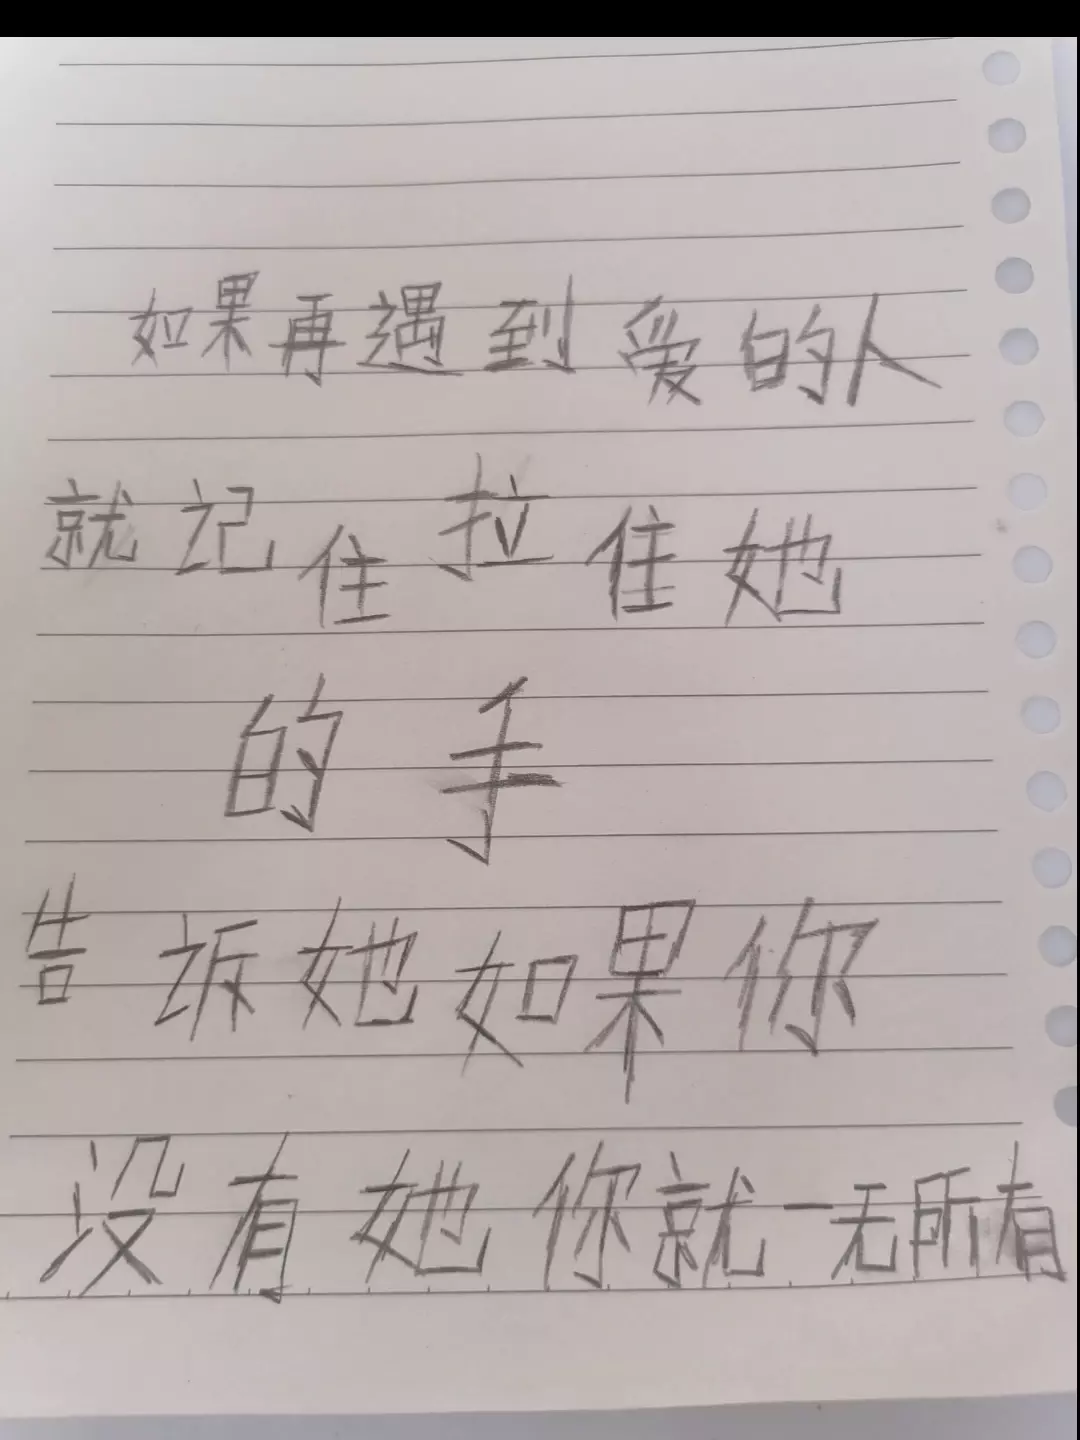 如果再遇到爱的人
就记住拉住她
的手
告诉她如果你
没有她你就一无所有